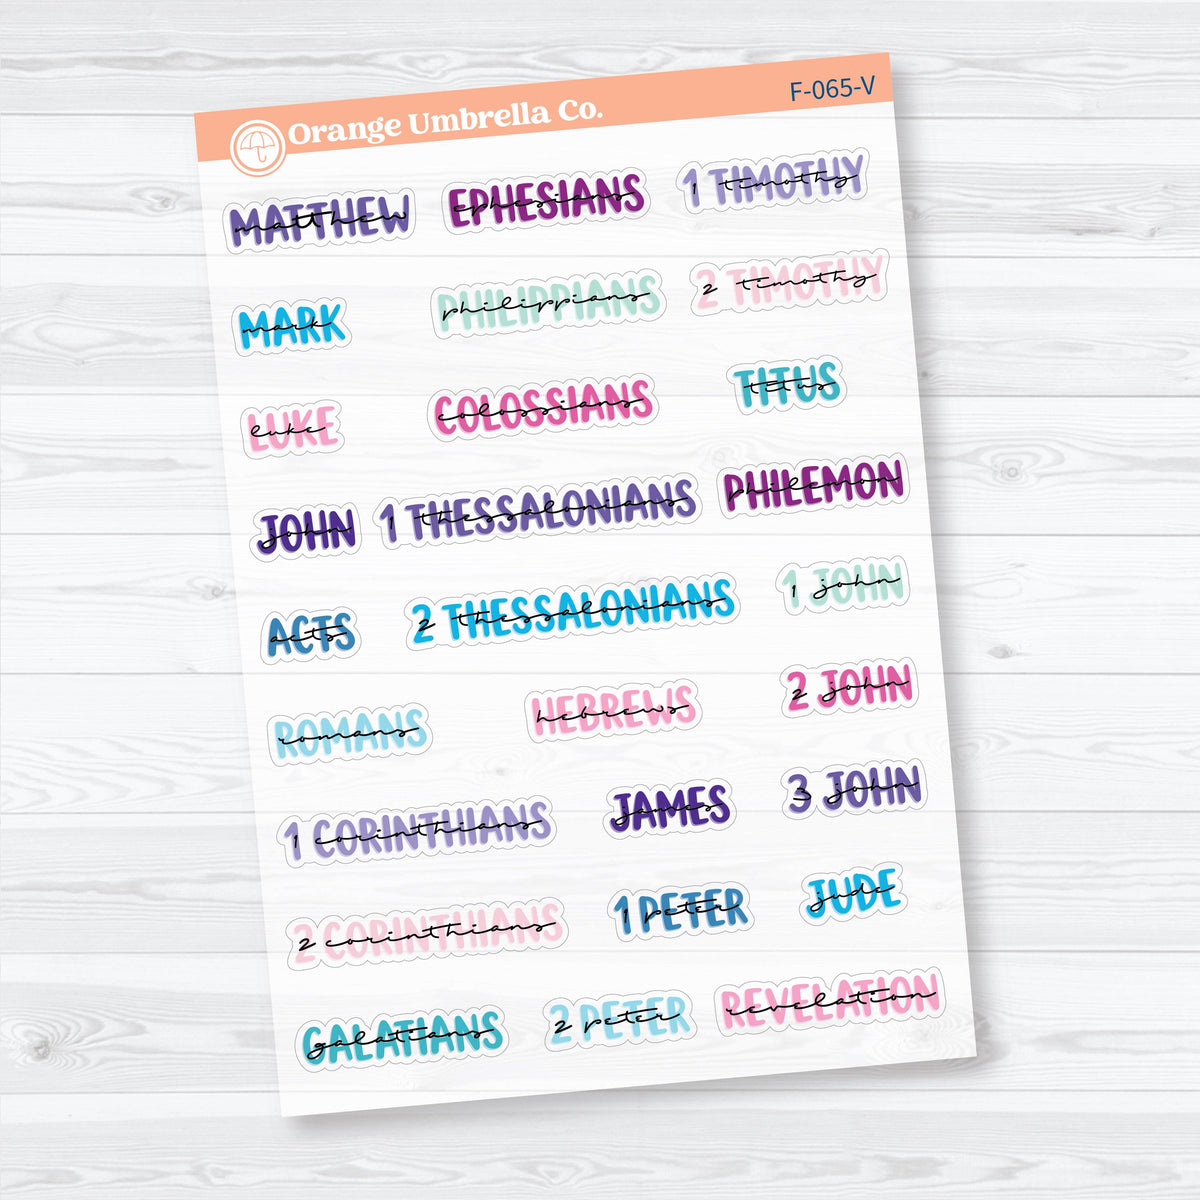 Orange Umbrella Co.
F-065-V
MATTHEW
matthew
EPHESIANS
ephesians
1 TIMOTHY
1 timothy
MARK
mark
PHILIPPIANS
philippians
2 TIMOTHY
2 timothy
LUKE
luke
COLOSSIANS
colossians
TITUS
titus
JOHN
john
1 THESSALONIANS
1 thessalonians
PHILEMON
philemon
ACTS
acts
2 THESSALONIANS
2 thessalonians
1 JOHN
1 john
ROMANS
romans
HEBREWS
hebrews
2 JOHN
2 john
1 CORINTHIANS
1 corinthians
JAMES
james
3 JOHN
3 john
2 CORINTHIANS
2 corinthians
1 PETER
1 peter
JUDE
jude
GALATIANS
galatians
2 PETER
2 peter
REVELATION
revelation